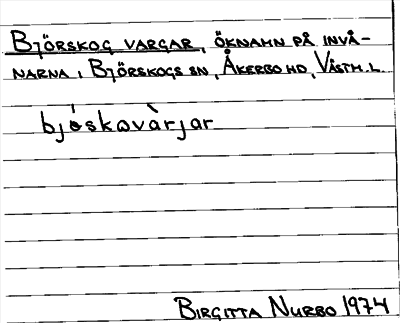 BJÖRSKOG VARGAR, ÖKNAMN PÅ INVÅ-
NARNA I BJÖRSKOGS SN, ÅKERBO HD, VÄSTM. L.
bjóskωvàrjar
BIRGITTA NURBO 1974